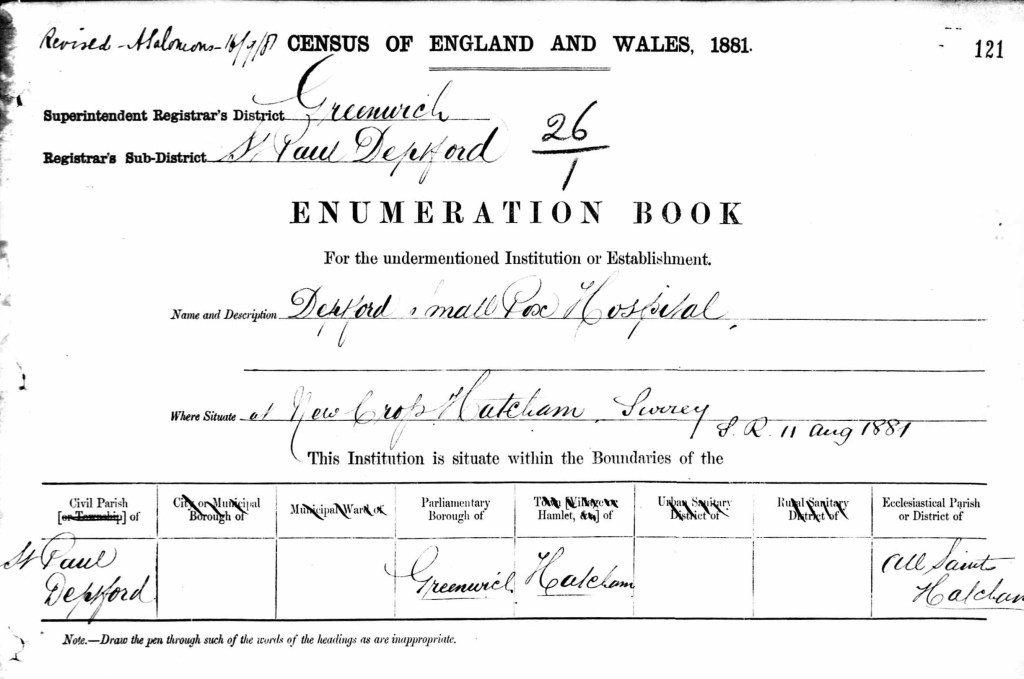 Revised - A Salomons - 16/7/81 CENSUS OF ENGLAND AND WALES, 1881. 121
Superintendent Registrar's District Greenwich
Registrar's Sub-District St Paul Deptford
26
1
ENUMERATION BOOK
For the undermentioned Institution or Establishment.
Name and Description Deptford Small Pox Hospital.
Where Situate at New Cross Hatcham Surrey
S. R. 11 Aug 1881
This Institution is situate within the Boundaries of the
Civil Parish [or Township] of
City or Municipal Borough of
Municipal Ward of
Parliamentary Borough of
Town [Village or Hamlet, &c.] of
Urban Sanitary District of
Rural Sanitary District of
Ecclesiastical Parish or District of
St Paul Deptford
Greenwich
Hatcham
All Saints Hatcham
Note.—Draw the pen through such of the words of the headings as are inappropriate.